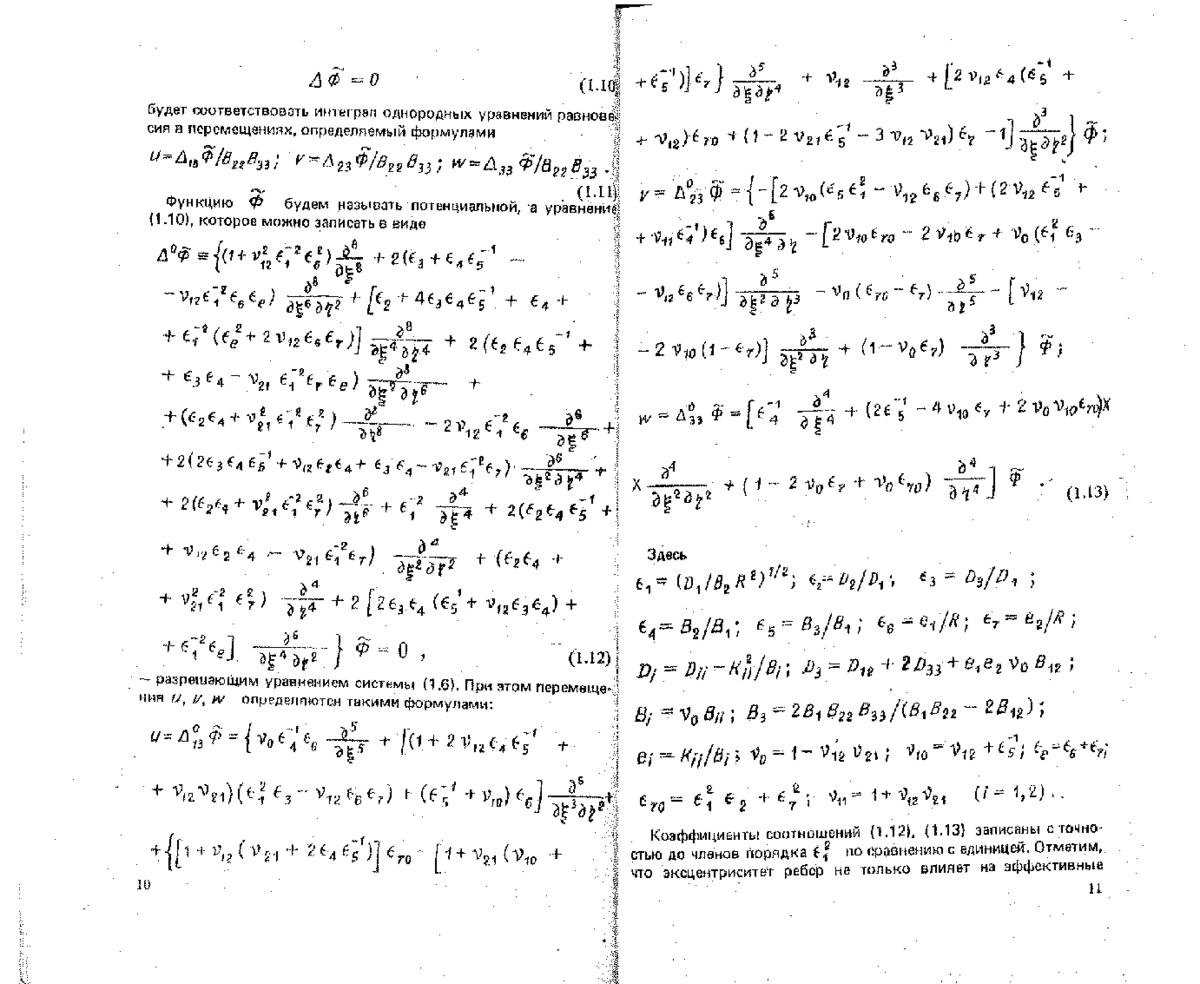 Δ Φ̃ = 0 (1.10
будет соответствовать интеграл однородных уравнений равнове
сия в перемещениях, определяемый формулами
u=Δ₁₃Φ̃/B₂₂B₃₃; v=Δ₂₃Φ̃/B₂₂B₃₃; w=Δ₃₃Φ̃/B₂₂B₃₃.
(1.11)
Функцию Φ̃ будем называть потенциальной, а уравнение
(1.10), которое можно записать в виде
Δ⁰Φ̃ ≡ {(1+ν₁₂² ϵ₁⁻² ϵ₆²) ∂⁸/∂ξ⁸ + 2(ϵ₃+ϵ₄ϵ₅⁻¹ −
−ν₁₂ϵ₁⁻²ϵ₆ϵₑ) ∂⁸/∂ξ⁶∂η² + [ϵ₂+4ϵ₃ϵ₄ϵ₅⁻¹ + ϵ₄ +
+ ϵ₁⁻²(ϵₑ²+2ν₁₂ϵ₆ϵ₇)] ∂⁸/∂ξ⁴∂η⁴ + 2(ϵ₂ϵ₄ϵ₅⁻¹ +
+ ϵ₃ϵ₄ − ν₂₁ ϵ₁⁻²ϵ₇ϵₑ) ∂⁸/∂ξ²∂η⁶ +
+(ϵ₂ϵ₄+ν₂₁²ϵ₁⁻²ϵ₇²) ∂⁸/∂η⁸ − 2ν₁₂ϵ₁⁻²ϵ₆ ∂⁶/∂ξ⁶ +
+2(2ϵ₃ϵ₄ϵ₅⁻¹+ν₁₂ϵ₂ϵ₄+ϵ₃ϵ₄−ν₂₁ϵ₁⁻²ϵ₇) ∂⁶/∂ξ²∂η⁴ +
+ 2(ϵ₂ϵ₄+ν₂₁²ϵ₁⁻²ϵ₇²) ∂⁶/∂η⁶ + ϵ₁⁻² ∂⁴/∂ξ⁴ + 2(ϵ₂ϵ₄ϵ₅⁻¹ +
+ ν₁₂ϵ₂ϵ₄ − ν₂₁ϵ₁⁻²ϵ₇) ∂⁴/∂ξ²∂η² + (ϵ₂ϵ₄ +
+ ν₂₁²ϵ₁⁻²ϵ₇²) ∂⁴/∂η⁴ + 2[2ϵ₃ϵ₄(ϵ₅⁻¹+ν₁₂ϵ₃ϵ₄) +
+ϵ₁⁻²ϵₑ] ∂⁶/∂ξ⁴∂η² } Φ̃ = 0 , (1.12)
— разрешающим уравнением системы (1.6). При этом перемеще-
ния u, v, w определяются такими формулами:
u=Δ₁₃⁰Φ̃ = {ν₀ϵ₄⁻¹ϵ₆ ∂⁵/∂ξ⁵ + [(1+2ν₁₂ϵ₄ϵ₅⁻¹ +
+ ν₁₂ν₂₁)(ϵ₁²ϵ₃−ν₁₂ϵ₆ϵ₇) + (ϵ₅⁻¹+ν₁₀)ϵ₆] ∂⁵/∂ξ³∂η² +
+{[1+ν₁₂(ν₂₁+2ϵ₄ϵ₅⁻¹)]ϵ₇₀ − [1+ν₂₁(ν₁₀ +
10
+ϵ₅⁻¹)]ϵ₇} ∂⁵/∂ξ∂η⁴ + ν₁₂ ∂³/∂ξ³ + [2ν₁₂ϵ₄(ϵ₅⁻¹ +
+ ν₁₂)ϵ₇₀ + (1−2ν₂₁ϵ₅⁻¹ − 3ν₁₂ν₂₁)ϵ₇ −1] ∂³/∂ξ∂η²} Φ̃;
v = Δ₂₃⁰ Φ̃ = {−[2ν₁₀(ϵ₅ϵ₁² − ν₁₂ϵ₆ϵ₇)+(2ν₁₂ϵ₅⁻¹ +
+ν₁₁ϵ₄⁻¹)ϵ₆] ∂⁵/∂ξ⁴∂η − [2ν₁₀ϵ₇₀ − 2ν₁₀ϵ₇ + ν₀(ϵ₁²ϵ₃ −
− ν₁₂ϵ₆ϵ₇)] ∂⁵/∂ξ²∂η³ − ν₀(ϵ₇₀−ϵ₇) ∂⁵/∂η⁵ − [ν₁₂ −
−2ν₁₀(1−ϵ₇)] ∂³/∂ξ²∂η + (1−ν₀ϵ₇) ∂³/∂η³ } Φ̃;
w = Δ₃₃⁰ Φ̃ = [ϵ₄⁻¹ ∂⁴/∂ξ⁴ + (2ϵ₅⁻¹ − 4ν₁₀ϵ₇ + 2ν₀ν₁₀ϵ₇₀)×
× ∂⁴/∂ξ²∂η² + (1 − 2ν₀ϵ₇ + ν₀ϵ₇₀) ∂⁴/∂η⁴ ] Φ̃ . (1.13)
Здесь
ϵ₁ = (D₁/B₂R²)^1/2; ϵ₂=D₂/D₁; ϵ₃ = D₃/D₁ ;
ϵ₄= B₂/B₁; ϵ₅ = B₃/B₁; ϵ₆ = e₁/R; ϵ₇ = e₂/R ;
Dᵢ = Dᵢᵢ−Kᵢᵢ²/Bᵢ; D₃ = D₁₂ + 2D₃₃+e₁e₂ν₀B₁₂ ;
Bᵢ = ν₀Bᵢᵢ; B₃ = 2B₁B₂₂B₃₃/(B₁B₂₂ − 2B₁₂);
eᵢ = Kᵢᵢ/Bᵢ; ν₀ = 1−ν₁₂ν₂₁; ν₁₀ = ν₁₂+ϵ₅⁻¹; ϵₑ=ϵ₆+ϵ₇;
ϵ₇₀ = ϵ₁²ϵ₂ + ϵ₇²; ν₁₁ = 1+ν₁₂ν₂₁ (i = 1,2).
Коэффициенты соотношений (1.12), (1.13) записаны с точно-
стью до членов порядка ϵ₁² по сравнению с единицей. Отметим,
что эксцентриситет ребер не только влияет на эффективные
11